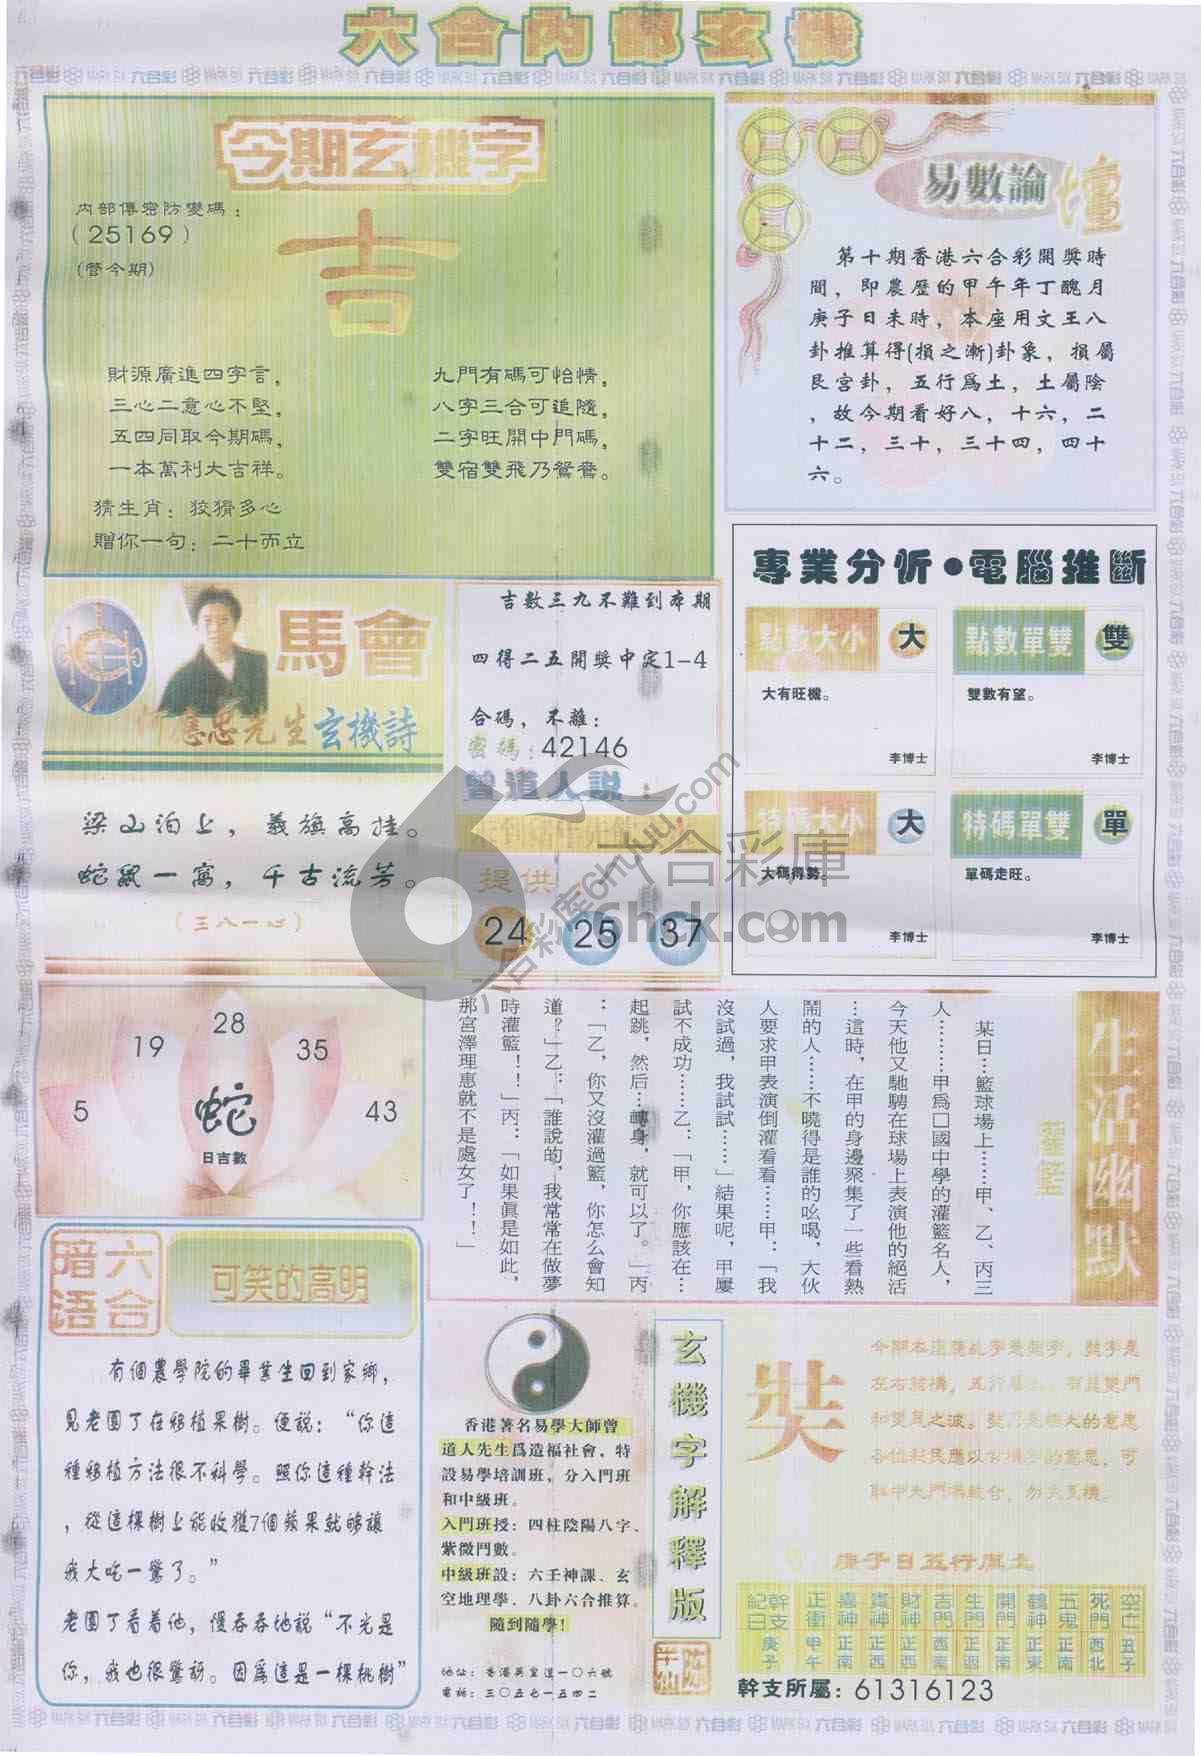 六合內部玄機
今期玄機字
內部傳密防變碼：
（25169）
(管今期)
吉
財源廣進四字言，
三心二意心不堅，
五四同取今期碼，
一本萬利大吉祥。
九門有碼可怡情，
八字三合可追隨，
二字旺開中門碼，
雙宿雙飛乃鴛鴦。
猜生肖：狡猾多心
贈你一句：二十而立
易數論壇
第十期香港六合彩開獎時
間，即農歷的甲午年丁醜月
庚子日未時，本座用文王八
卦推算得(損之漸)卦象，損屬
艮宮卦，五行爲土，土屬陰
，故今期看好八，十六，二
十二，三十，三十四，四十
六。
馬會
應忠先生玄機詩
梁山泊上，義旗高挂。
蛇鼠一窩，千古流芳。
（三八一心）
吉數三九不難到本期
四得二五開獎中定1-4
合碼，不離：
密碼：42146
曾道人説：
提供
24
25
37
專業分析●電腦推斷
點數大小 大
大有旺機。
李博士
點數單雙 雙
雙數有望。
李博士
特碼大小 大
大碼得勢。
李博士
特碼單雙 單
單碼走旺。
李博士
5
19
28
35
43
蛇
日吉數
生活幽默
灌籃
某日…籃球場上……甲、乙、丙三
人…………甲爲囗國中學的灌籃名人，
今天他又馳騁在球場上表演他的絕活
…這時，在甲的身邊聚集了一些看熱
鬧的人……不曉得是誰的吆喝，大伙
人要求甲表演倒灌看看……甲：「我
沒試過，我試試……」結果呢，甲屢
試不成功……乙：「甲，你應該在…
起跳，然后…轉身，就可以了。」丙
：「乙，你又沒灌過籃，你怎么會知
道？」乙：「誰說的，我常常在做夢
時灌籃！！」丙：「如果眞是如此，
那宮澤理惠就不是處女了！！」
六合暗语
可笑的高明
有個農學院的畢業生回到家鄉，
見老園丁在移植果樹。便説：“你這
種移植方法很不科學。照你這種幹法
，從這棵樹上能收獲7個蘋果就够讓
我大吃一驚了。”
老園丁看着他，慢吞吞地説“不光是
你，我也很驚訝。因爲這是一棵桃樹”
香港著名易學大師曾
道人先生爲造福社會，特
設易學培訓班，分入門班
和中級班。
入門班授：四柱陰陽八字、
紫微鬥數。
中級班設：六壬神課、玄
空地理學、八卦六合推算。
隨到隨學！
地址：香港英皇道一〇六號
電話：三〇五七一五四二
玄機字解釋版
庚子日五行屬土
幹支記日 庚子
正衝 甲午
喜神 正南
貴神 正西
財神 正西
吉門 西南
生門 正西
開門 正南
鶴神 正東
五鬼 正南
死門 西北
空亡 丑子
幹支所屬：61316123
六合彩库chuu.com
六合彩庫
6hdk.com